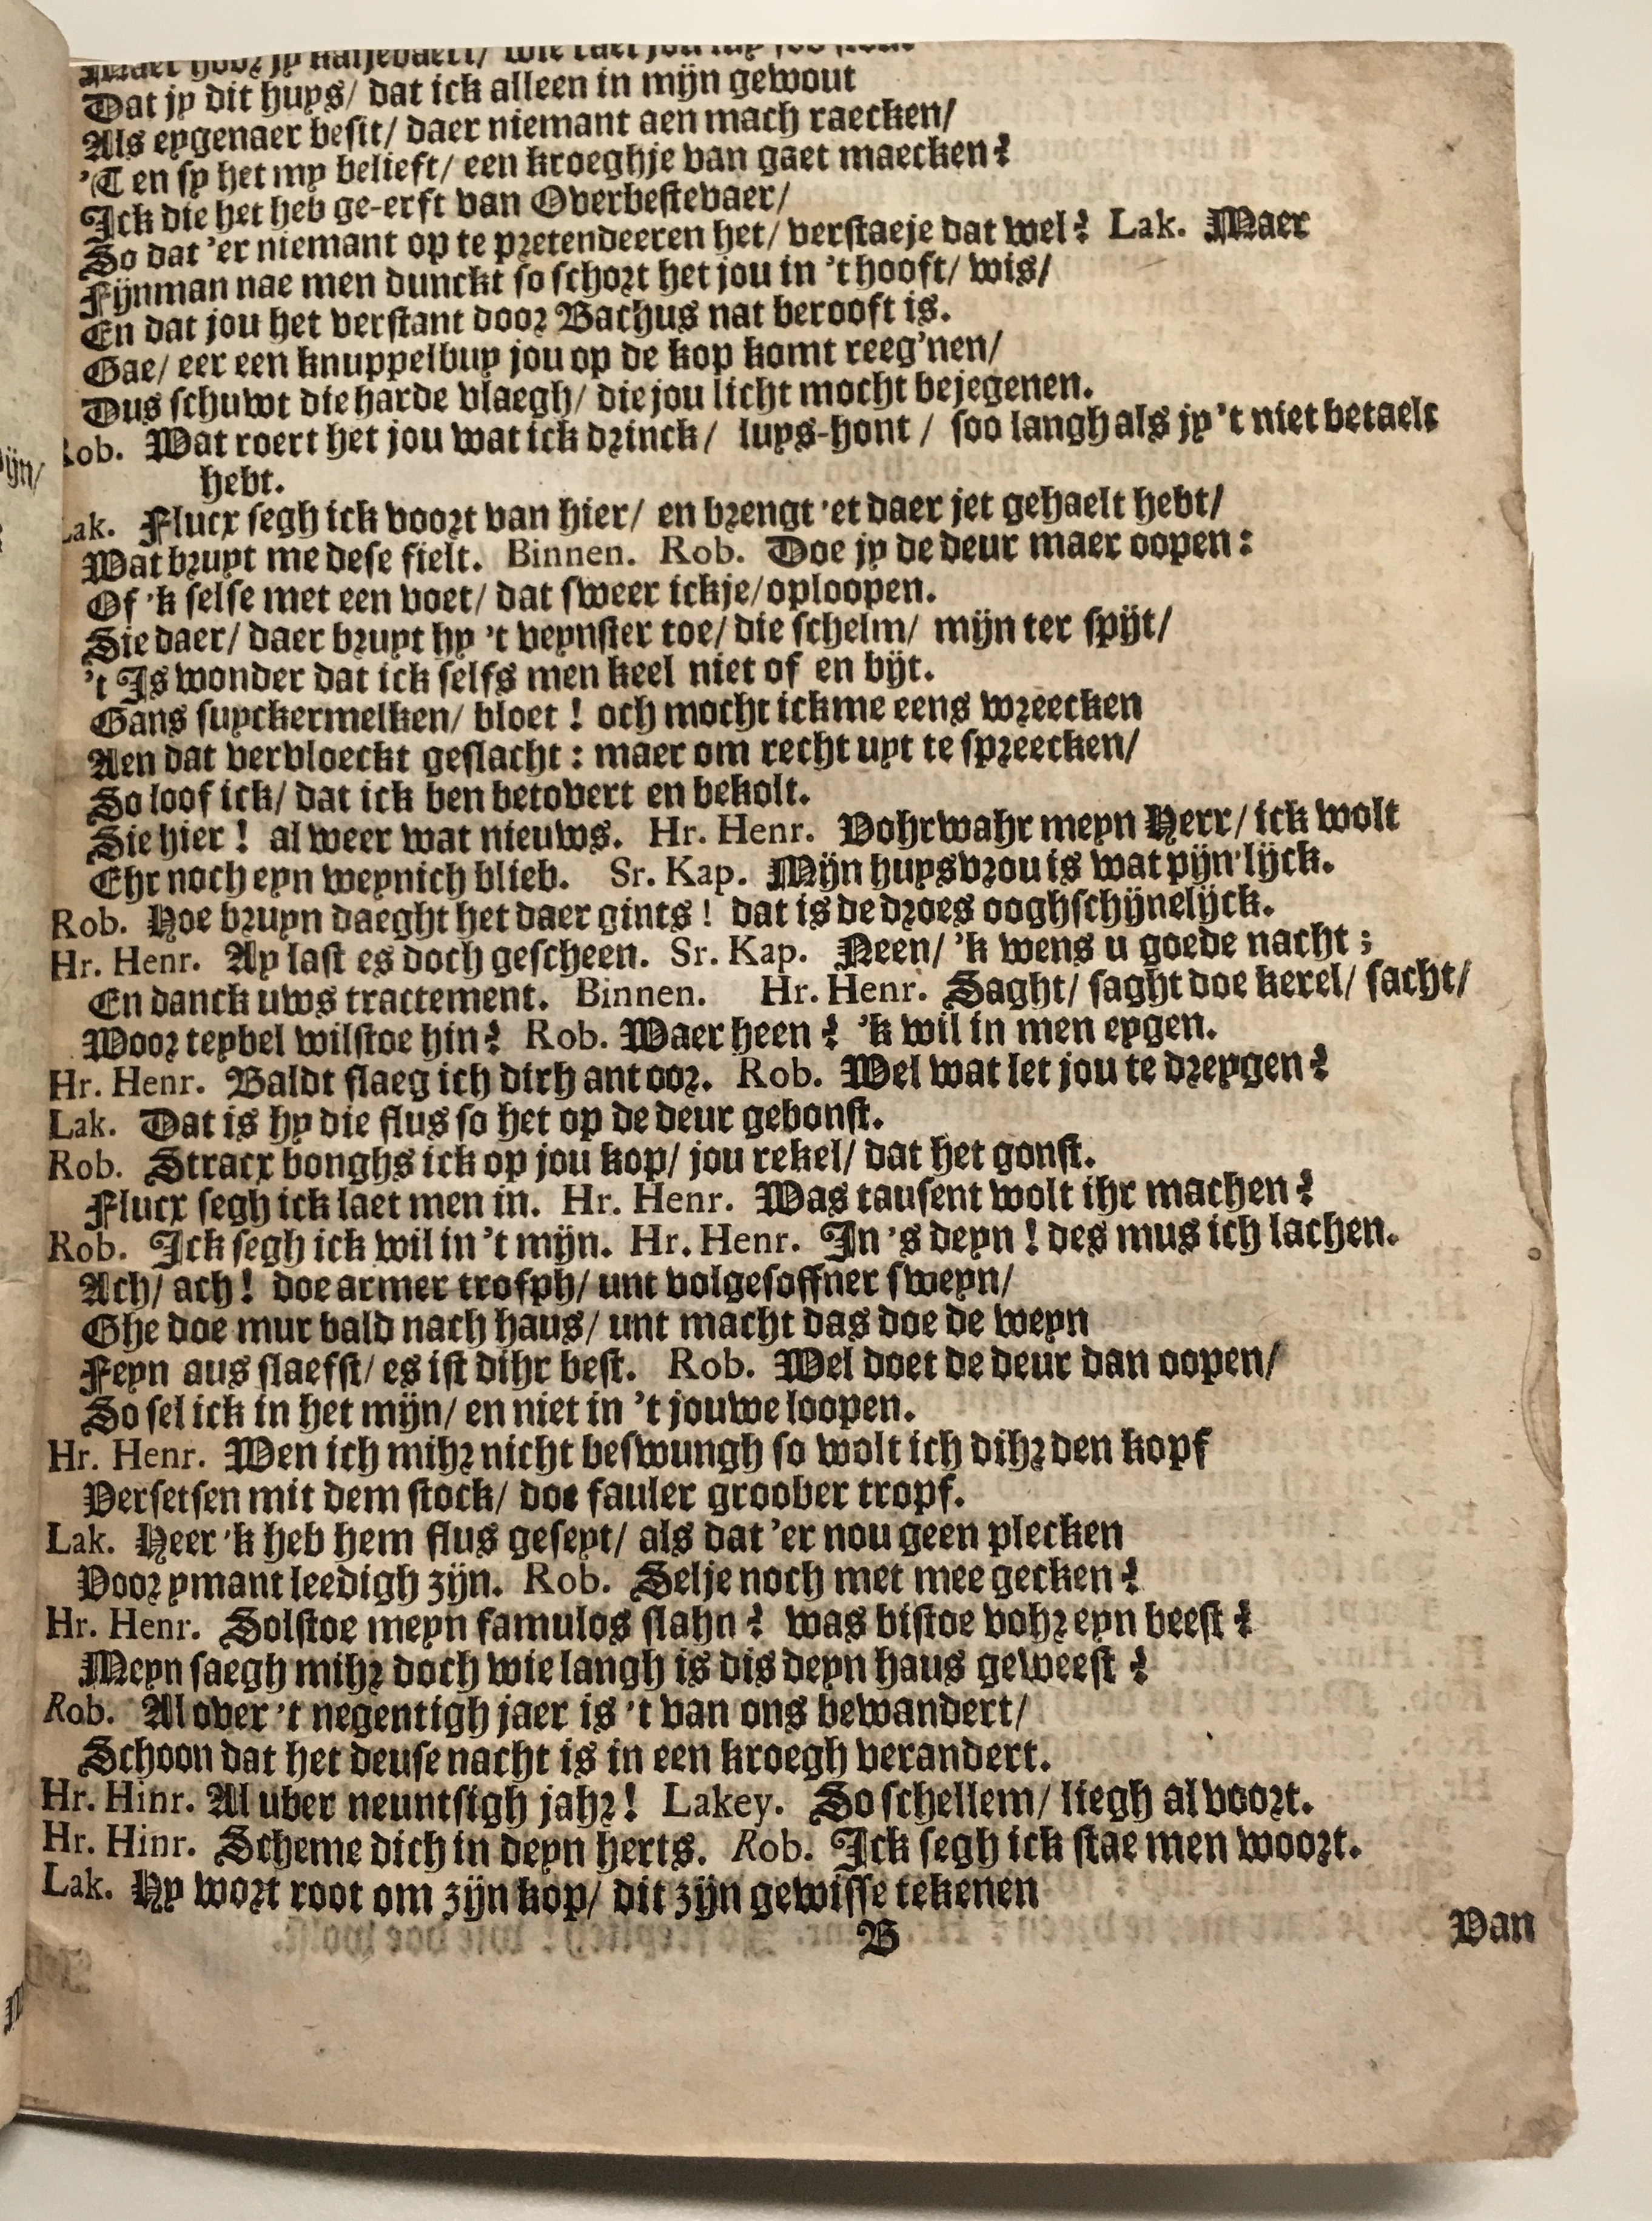 Maer hoor jy kaljevaert/ wie raet jou my soo stout
Dat jy dit huys/ dat ick alleen in mijn gewout
Als eygenaer besit/ daer niemant aen mach raecken/
'T en sy het my belieft/ een kroeghje van gaet maecken?
Ick die het heb ge-erft van Overbestevaer/
So dat 'er niemant op te pretendeeren het/ verstaeje dat wel? Lak. Maer
Fijnman nae men dunckt so schort het jou in 't hooft/ wis/
En dat jou het verstant door Bachus nat berooft is.
Gae/ eer een knuppelbuy jou op de kop komt reeg'nen/
Dus schuwt die harde vlaegh/ die jou licht mocht bejegenen.
Rob. Wat roert het jou wat ick drinck/ luys-hont/ soo langh als jy 't niet betaelt
hebt.
Lak. Flucx segh ick voort van hier/ en brengt 'et daer jet gehaelt hebt/
Wat bruyt me dese fielt. Binnen. Rob. Doe jy de deur maer oopen:
Of 'k selse met een voet/ dat sweer ickje/ oploopen.
Sie daer/ daer bruyt hy 't veynster toe/ die schelm/ mijn ter spijt/
't Is wonder dat ick selfs men keel niet of en bijt.
Gans suyckermelken/ bloet! och mocht ick me eens wreecken
Aen dat vervloeckt geslacht: maer om recht uyt te spreecken/
So loof ick/ dat ick ben betovert en bekolt.
Sie hier! al weer wat nieuws. Hr. Henr. Vohrwahr meyn Herr/ ick wolt
Ehr noch eyn weynich blieb. Sr. Kap. Mijn huysvrou is wat pijn'lijck.
Rob. Hoe bruyn daeght het daer gints! dat is de droes ooghschijnelijck.
Hr. Henr. Ay last es doch gescheen. Sr. Kap. Neen/ 'k wens u goede nacht;
En danck uws tractement. Binnen. Hr. Henr. Saght/ saght doe kerel/ sacht/
Woor teybel wilstoe hin? Rob. Waer heen? 'k wil in men eygen.
Hr. Henr. Baldt slaeg ich dich ant oor. Rob. Wel wat let jou te dreygen?
Lak. Dat is hy die flus so het op de deur gebonst.
Rob. Stracx bonghs ick op jou kop/ jou rekel/ dat het gonst.
Flucx segh ick laet men in. Hr. Henr. Was tausent wolt ihr machen?
Rob. Ick segh ick wil in 't mijn. Hr. Henr. In 's deyn! des mus ich lachen.
Ach/ ach! doe armer trofph/ unt volgesoffner sweyn/
Ghe doe mur bald nach haus/ unt macht das doe de weyn
Feyn aus slaefst/ es ist dihr best. Rob. Wel doet de deur dan oopen/
So sel ick in het mijn/ en niet in 't jouwe loopen.
Hr. Henr. Wen ich mihr nicht beswungh so wolt ich dihr den kopf
Versetsen mit dem stock/ doe fauler groober tropf.
Lak. Heer 'k heb hem flus geseyt/ als dat 'er nou geen plecken
Voor ymant leedigh zijn. Rob. Selje noch met mee gecken?
Hr. Henr. Solstoe meyn famulos slahn? was bistoe vohr eyn beest?
Meyn saegh mihr doch wie langh is dis deyn haus geweest?
Rob. Al over 't negentigh jaer is 't van ons bewandert/
Schoon dat het deuse nacht is in een kroegh verandert.
Hr. Hinr. Al uber neuntsigh jahr! Lakey. So schellem/ liegh al voort.
Hr. Hinr. Scheme dich in deyn herts. Rob. Ick segh ick stae men woort.
Lak. Hy wort root om zijn kop/ dit zijn gewisse tekenen
B
Van